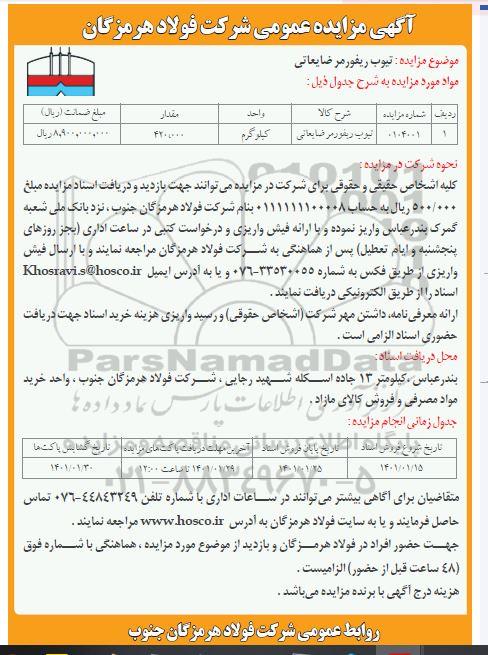 آگهی مزایده عمومی شرکت فولاد هرمزگان
موضوع مزایده : تیوب ریفورمر ضایعاتی
مواد مورد مزایده به شرح جدول ذیل :
ردیف شماره مزایده شرح کالا واحد مقدار مبلغ ضمانت (ریال)
۱ ۰۱۰۴۰۰۱ تیوب ریفورمر ضایعاتی کیلوگرم ۴۲۰،۰۰۰ ۸،۹۰۰،۰۰۰،۰۰۰ ریال
نحوه شرکت در مزایده :
کلیه اشخاص حقیقی و حقوقی برای شرکت در مزایده می توانند جهت بازدید و دریافت اسناد مزایده مبلغ
۵۰۰/۰۰۰ ریال به حساب ۰۱۱۱۱۱۱۱۰۰۰۰۸ بنام شرکت فولاد هرمزگان جنوب ، نزد بانک ملی شعبه
گمرک بندرعباس واریز نموده و با ارائه فیش واریزی و درخواست کتبی در ساعت اداری (بجز روزهای
پنجشنبه و ایام تعطیل) پس از هماهنگی به شرکت فولاد هرمزگان مراجعه نمایند و یا ارسال فیش
واریزی از طریق فکس به شماره ۳۳۵۳۰۰۵۵-۰۷۶ و یا به آدرس ایمیل Khosravi.s@hosco.ir
اسناد را از طریق الکترونیکی دریافت نمایند .
ارائه معرفی نامه، داشتن مهر شرکت (اشخاص حقوقی) و رسید واریزی هزینه خرید اسناد جهت دریافت
حضوری اسناد الزامی است .
محل دریافت اسناد :
بندرعباس ،کیلومتر ۱۳ جاده اسکله شهید رجایی ، شرکت فولاد هرمزگان جنوب ، واحد خرید
مواد مصرفی و فروش کالای مازاد .
جدول زمانی انجام مزایده :
تاریخ شروع فروش اسناد تاریخ پایان فروش اسناد آخرین مهلت دریافت پاکت های مزایده تاریخ گشایش پاکت‌ها
۱۴۰۱/۰۱/۱۵ ۱۴۰۱/۰۱/۲۵ ۱۴۰۱/۰۱/۲۹ تا ساعت ۱۲:۰۰ ۱۴۰۱/۰۱/۳۰
متقاضیان برای آگاهی بیشتر می توانند در ساعات اداری با شماره تلفن ۴۴۸۴۳۲۴۹-۰۷۶ تماس
حاصل فرمایند و یا به سایت فولاد هرمزگان به آدرس www.hosco.ir مراجعه نمایند .
جهت حضور افراد در فولاد هرمزگان و بازدید از موضوع مورد مزایده ، هماهنگی با شماره فوق
(۴۸ ساعت قبل از حضور) الزامیست .
هزینه درج آگهی با برنده مزایده می‌باشد .
روابط عمومی شرکت فولاد هرمزگان جنوب
ParsNamadData
۰۲۱-۸۸۳۴۹۶۷۰-۵